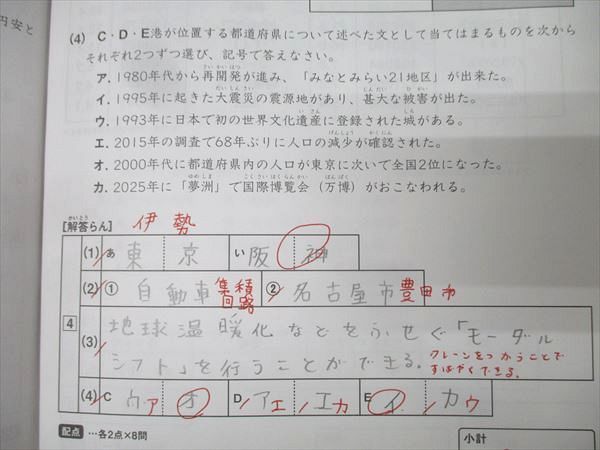 円安と
(4) C・D・E港が位置する都道府県について述べた文として当てはまるものを次から
それぞれ2つずつ選び、記号で答えなさい。
ア. 1980年代から再開発が進み、「みなとみらい21地区」が出来た。
イ. 1995年に起きた大震災の震源地があり、甚大な被害が出た。
ウ. 1993年に日本で初の世界文化遺産に登録された城がある。
エ. 2015年の調査で68年ぶりに人口の減少が確認された。
オ. 2000年代に都道府県内の人口が東京に次いで全国2位になった。
カ. 2025年に「夢洲」で国際博覧会（万博）がおこなわれる。
[解答らん] 伊勢
(1) あ 東京 い 阪神
(2) ① 自動車 集積回路 ② 名古屋市 豊田市
4
(3) 地球温暖化などをふせぐ「モーダル
シフト」を行うことができる。 クレーンをつかうことで
すばやくできる。
(4) C ウ ア オ D ア エ エ カ E イ カ ウ
配点 …各2点×8問
小計